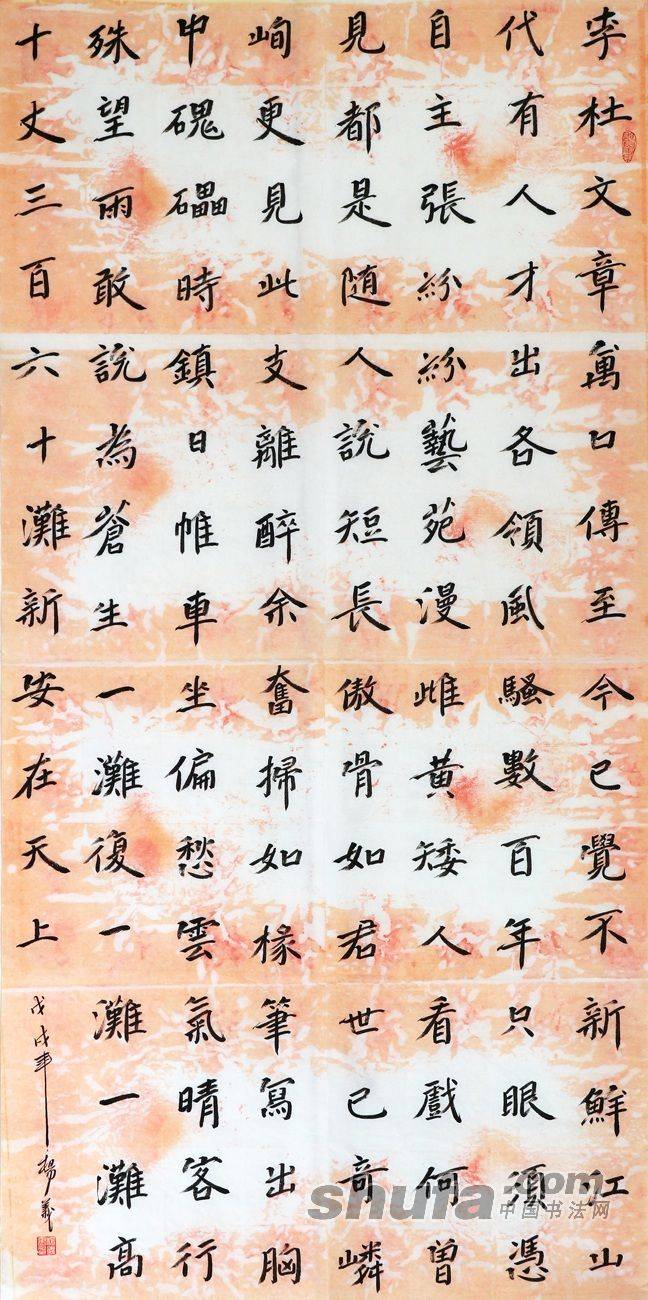 李杜文章萬口傳至今已覺不新鮮江山
代有人才出各領風騷數百年只眼須憑
自主張紛紛藝苑漫雌黃矮人看戲何曾
見都是随人說短長傲骨如君世已奇嶙
峋更見此支離醉余奮掃如椽筆寫出胸
中磈礧時鎮日帷車坐偏愁雲氣晴客行
殊望雨敢說為蒼生一灘復一灘一灘高
十丈三百六十灘新安在天上
戊戌年 楊義
shufa.com
中国书法网